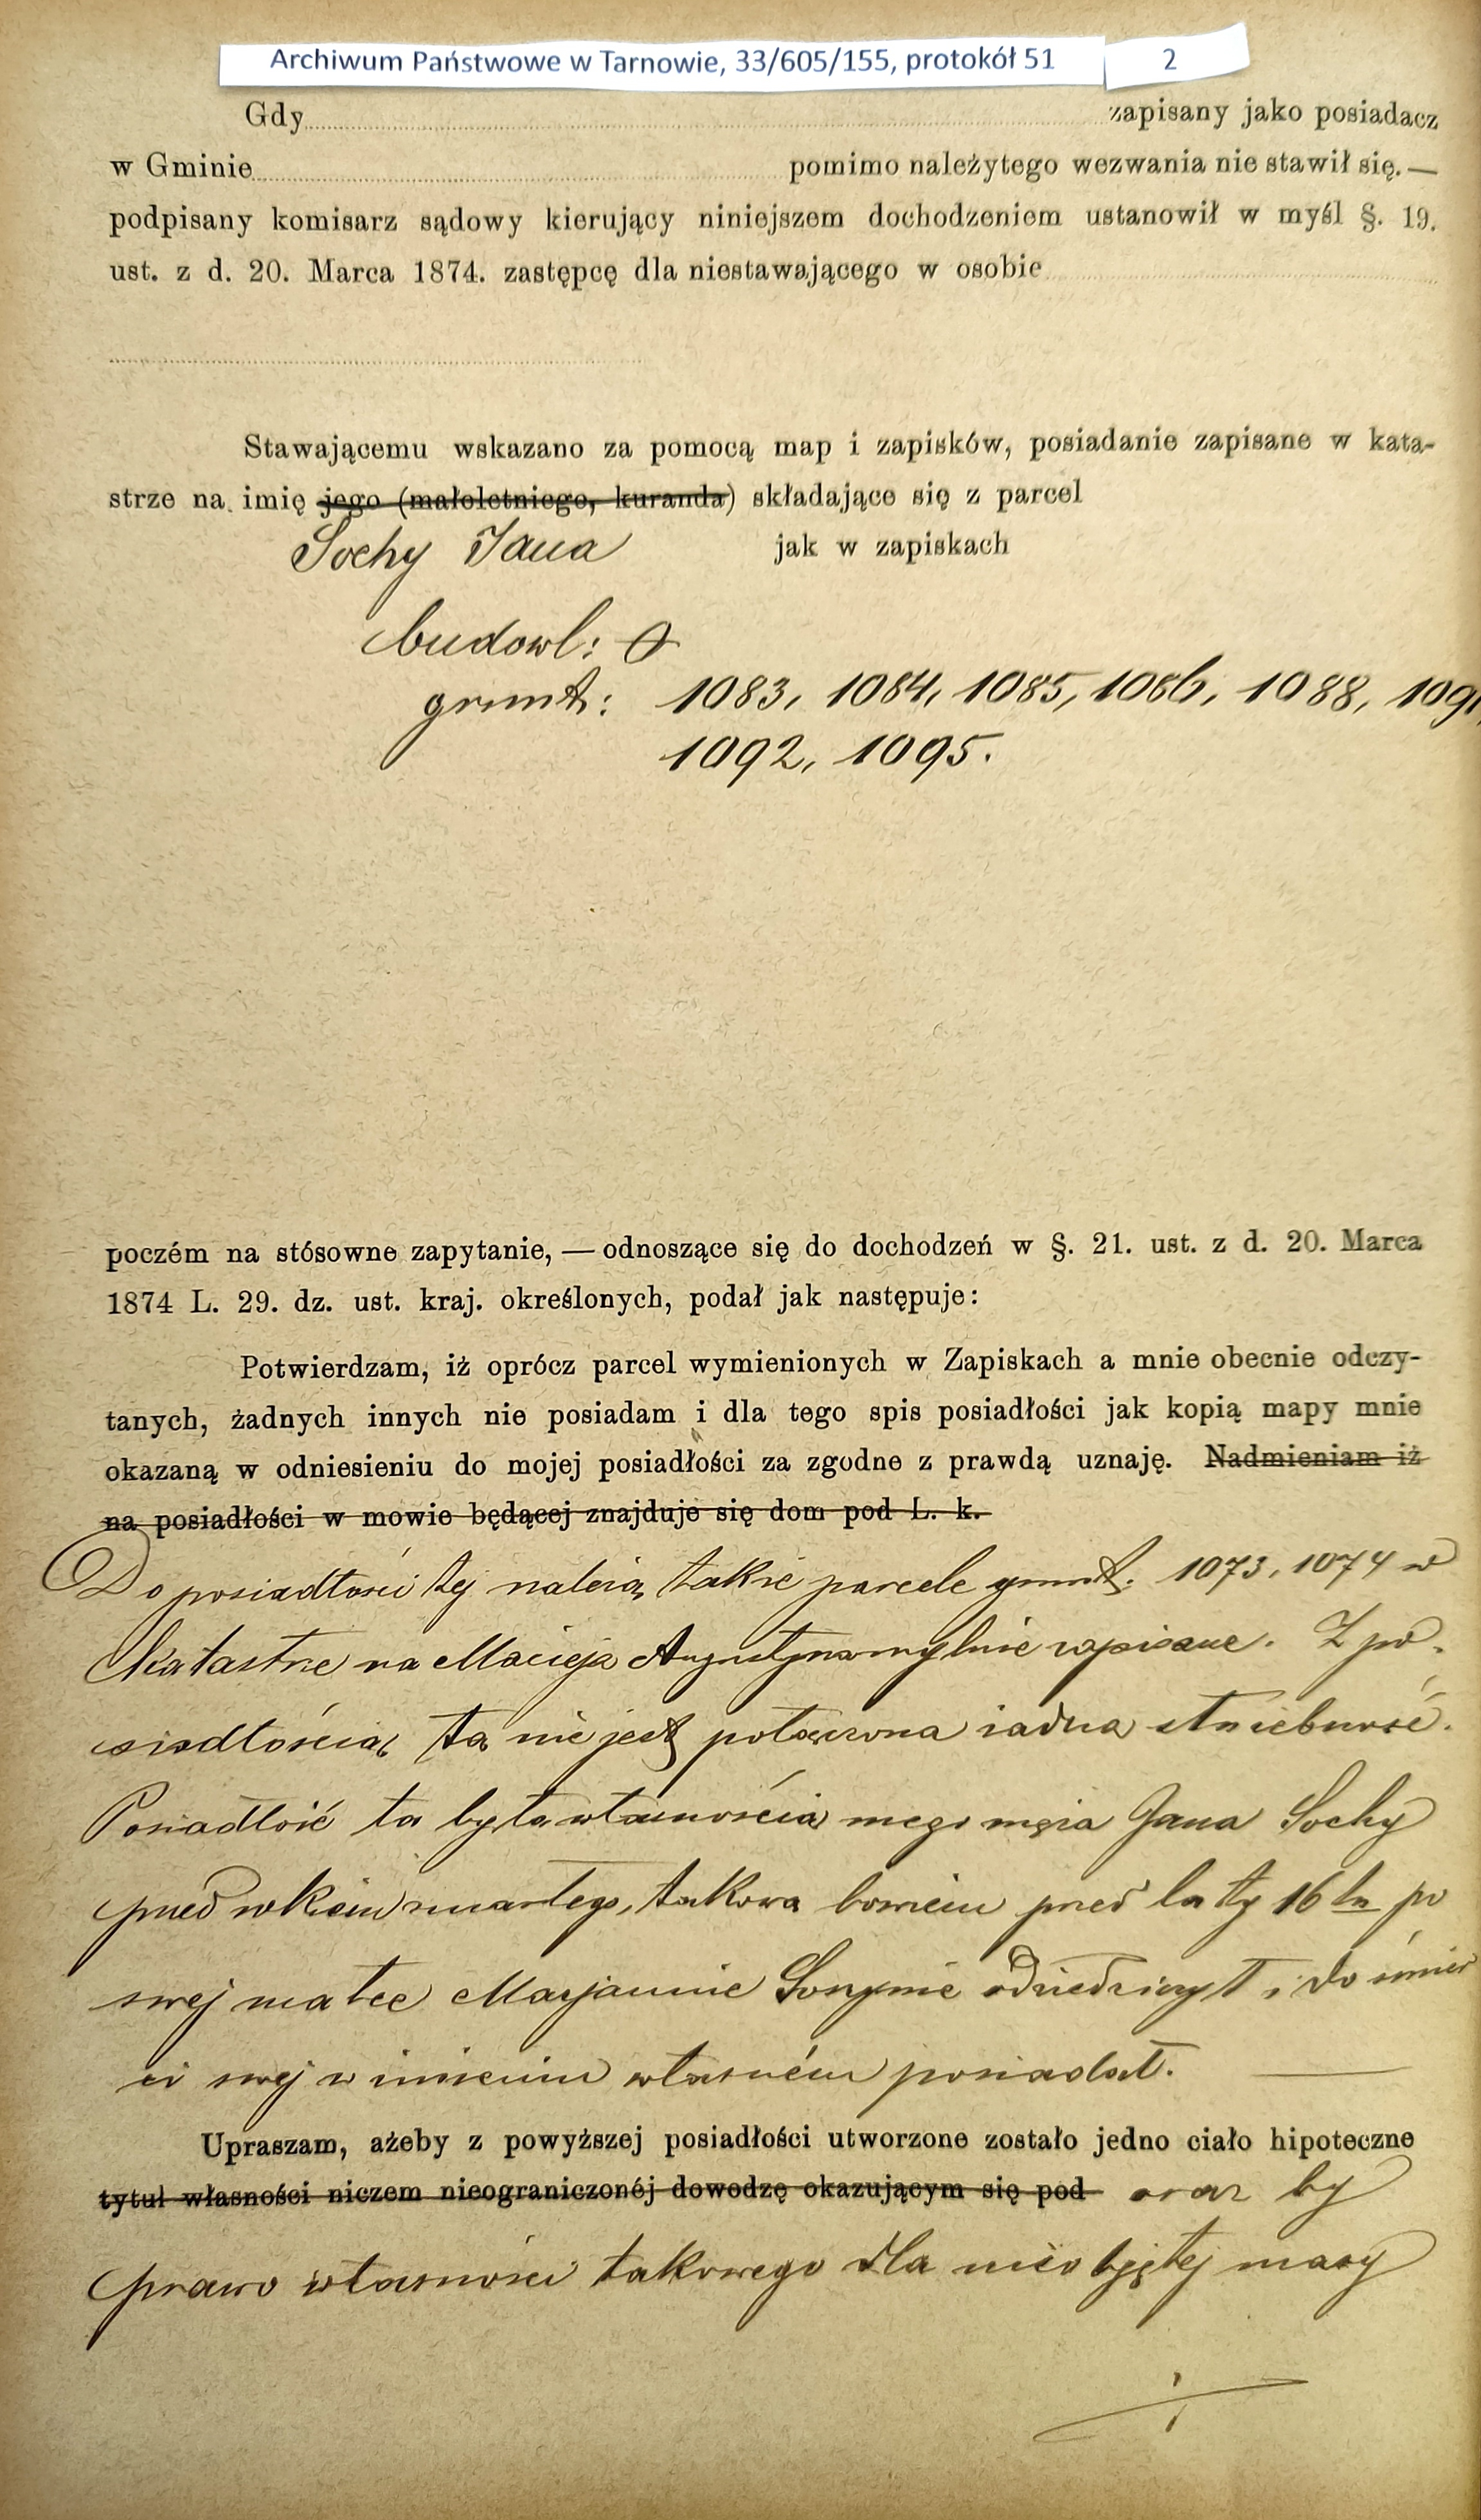 Archiwum Państwowe w Tarnowie, 33/605/155, protokół 51 2
Gdy zapisany jako posiadacz
w Gminie pomimo należytego wezwania nie stawił się. —
podpisany komisarz sądowy kierujący niniejszem dochodzeniem ustanowił w myśl §. 19.
ust. z d. 20. Marca 1874. zastępcę dla niestawającego w osobie
Stawającemu wskazano za pomocą map i zapisków, posiadanie zapisane w kata-
strze na imię jego (małoletniego, kuranda) składające się z parcel
Sochy Jana jak w zapiskach
budowl: 0
grunt: 1083, 1084, 1085, 1086, 1088, 1091,
1092, 1095.
poczém na stósowne zapytanie, — odnoszące się do dochodzeń w §. 21. ust. z d. 20. Marca
1874 L. 29. dz. ust. kraj. określonych, podał jak następuje:
Potwierdzam, iż oprócz parcel wymienionych w Zapiskach a mnie obecnie odczy-
tanych, żadnych innych nie posiadam i dla tego spis posiadłości jak kopią mapy mnie
okazaną w odniesieniu do mojej posiadłości za zgodne z prawdą uznaję. Nadmieniam iż
na posiadłości w mowie będącej znajduje się dom pod L. k.
Do posiadłości tej należą także parcele grunt. 1073, 1074 w
Katastrze na Macieja Augustyna mylnie zapisane. Z po-
siadłością tą nie jest połączona żadna służebność.
Posiadłość ta była własnością mego męża Jana Sochy
przed rokiem zmarłego, takową bowiem przed laty 16tu po
swej matce Maryannie odziedziczył i do śmier
ci swej w imieniu własném posiadał.
Upraszam, ażeby z powyższej posiadłości utworzone zostało jedno ciało hipoteczne
tytuł własności niczem nieograniczonéj dowodzę okazującym się pod oraz by
prawo własności takowego dla nieobjętej masy